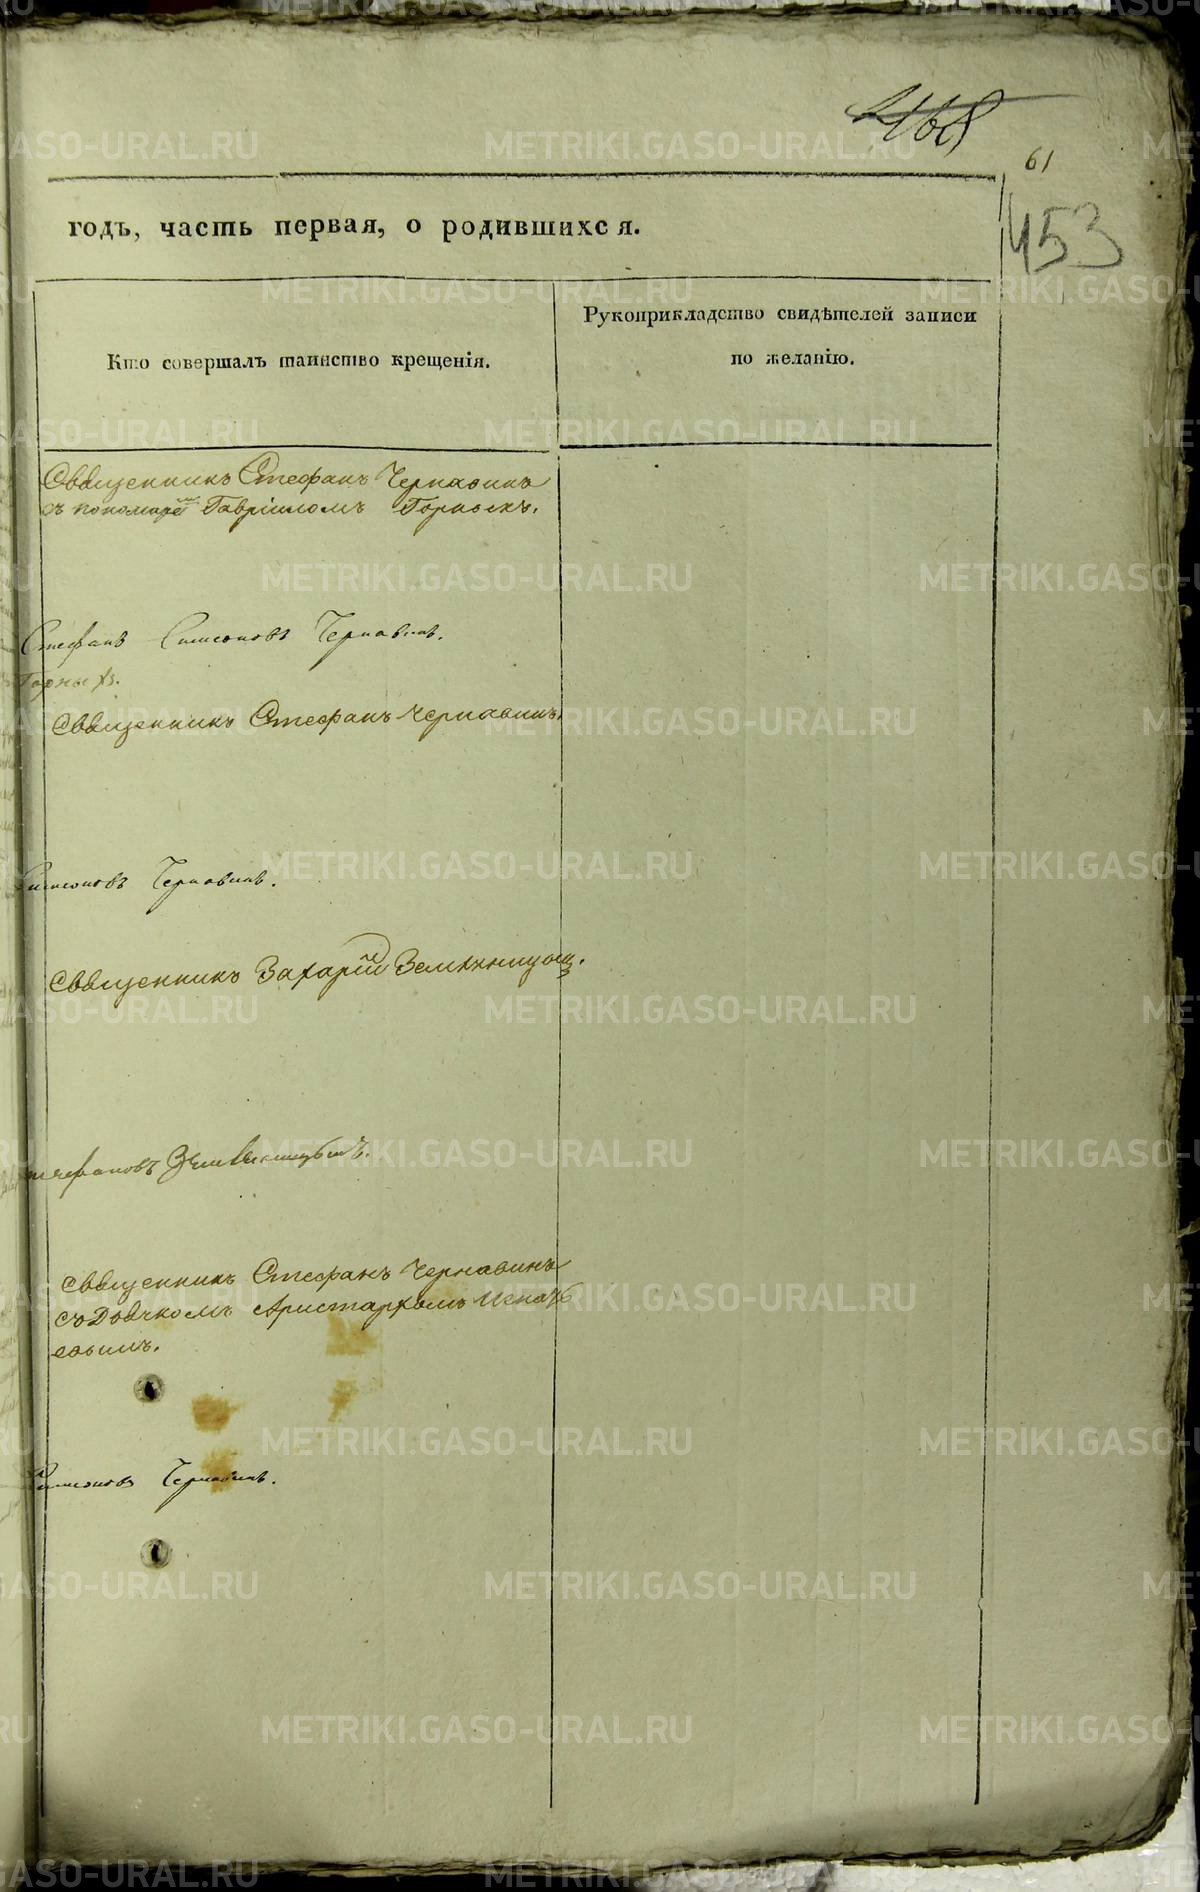 468
61
453
годъ, часть первая, о родившихся.
Кто совершалъ таинство крещенія.
Рукоприкладство свидѣтелей записи
по желанію.
Священникъ Стефанъ Чернавинъ
съ пономаремъ Гавріиломъ
Стефанъ Симеоновъ Чернавинъ.
Священникъ Стефанъ Чернавинъ.
Симеоновъ Чернавинъ.
Священникъ Захарій
Священникъ Стефанъ Чернавинъ
съ Дьячкомъ Аристархомъ Игнать
евымъ.
Симеоновъ Чернавинъ.
METRIKI.GASO-URAL.RU